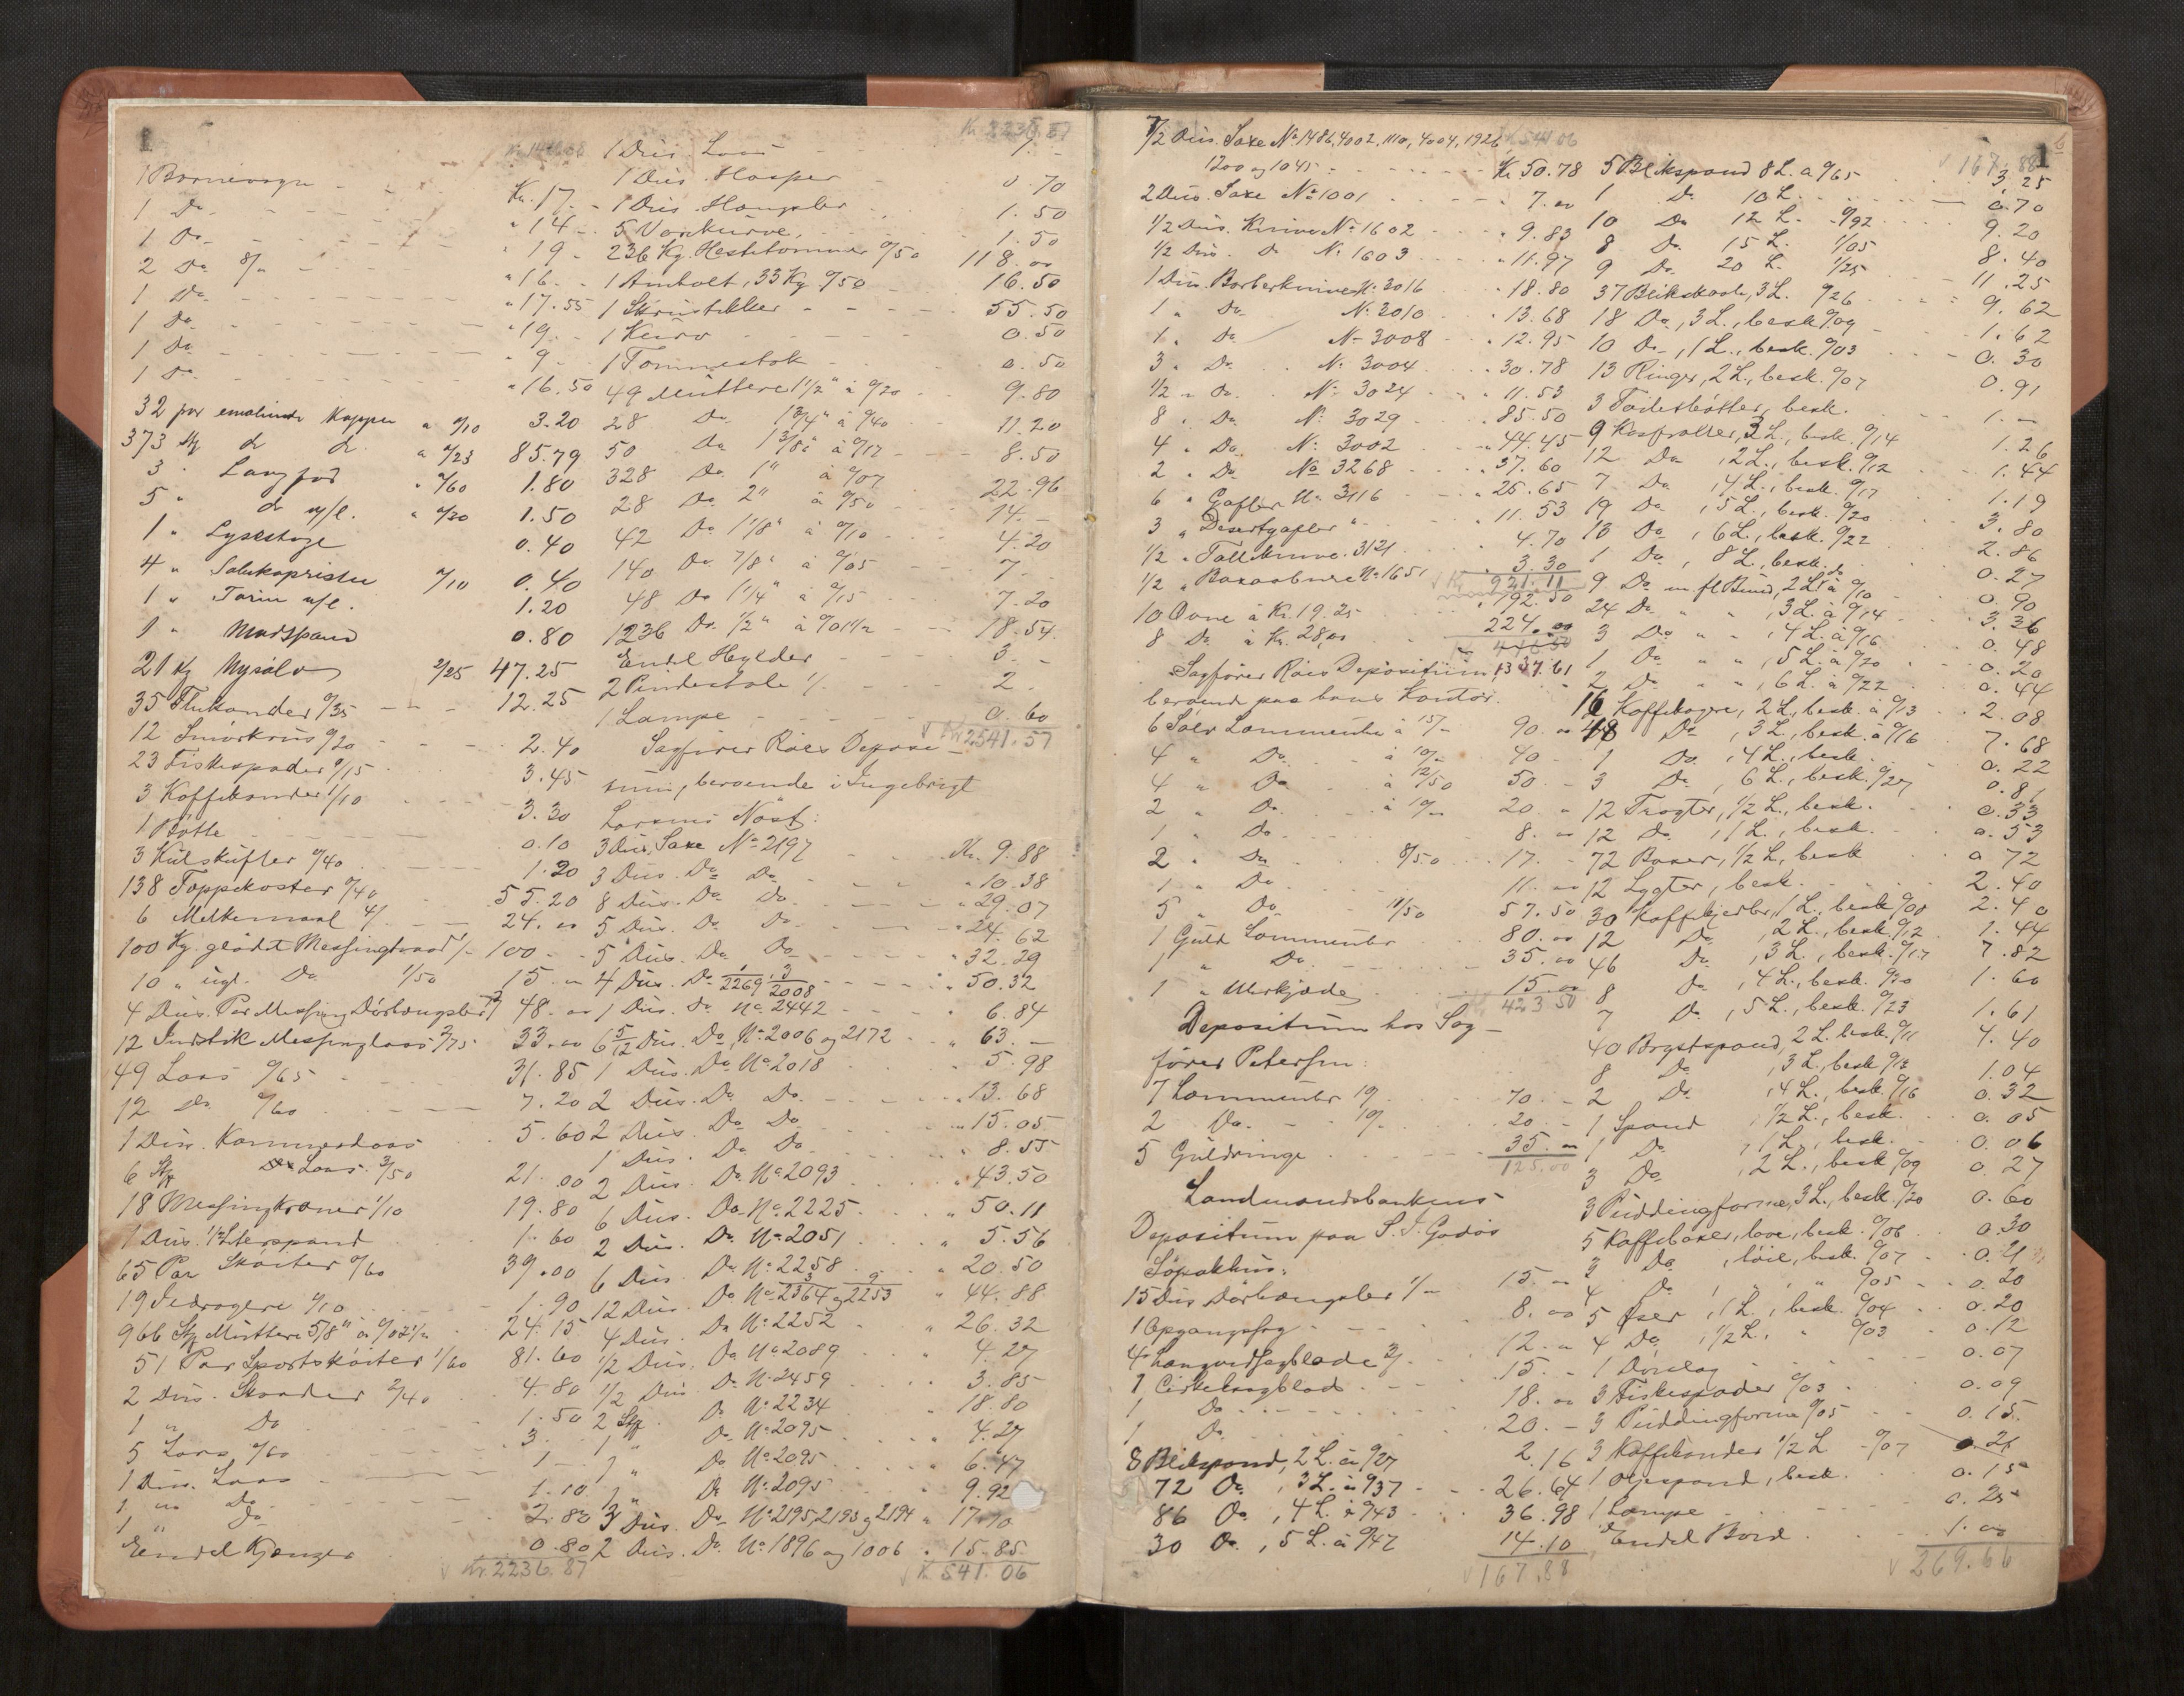 1 Barnevogn Kr. 17. -
1 Do - " 14 -
1 Do. - " 19 -
2 Do 8/- " 16. -
1 Do. " 17.55
1 Do. " 19. -
1 Do " 9 -
1 Do " 16.50
32 par emalierede Kopper a 0/10 3.20
373 Stk do do. a 0/23 85.79
3 " Langfad " 0/60 1.80
5 " do u/l. " 0/30 1.50
1 " Lysestage 0.40
4 " 0/10 0.40
1 " Tarin u/l. 1.20
1 " Madspand 0.80
21 Kg Nysølv 2/25 47.25
35 0/35 12.25
12 Smörkrus 0/20 2.40
23 Fiskespader 0/15 3.45
3 Kaffekander 1/10 3.30
1 Bötte 0.10
3 Kulskufler 0/40 1.20
138 Toppekoster 0/40 55.20
6 Melkemaal 4/- 24.00
100 Kg. glödet Messingtraad 1/- 100 -
10 " ugl. Do 1/50 15. -
4 Dus. Par Messing Dörhængsler 48. -
12 Indstik Messinglaas 2/75 33.00
49 Laas 0/65 31.85
12 Do 0/60 7.20
1 Dus. Kammerslaas 5.60
6 Stk Do Laas. 3/50 21.00
18 Messingkraner 1/10 19.80
1 Dus. 1/2 Literspand 1.60
65 Par Sköiter 0/60 39.00
19 Ildragere 0/10 1.90
966 Stk Muttere 5/8" à 0/02 1/2 24.15
51 Par Sportsköiter 1/60 81.60
2 Dus. Skruer 2/40 4.80
1 " Do 1.50
5 Laas 0/60 3. -
1 Dus. Laas 1 -
1 " Do 1.10
1 " Do 2.80
Endel Kjæneger 0.80
Kr. 2236.87
Kr. 2236.87
1 Dus. Laas
1 Dus. Hasper 0.70
1 Dus. Hængsler 1.50
5 Varekurve 1.50
236 Kg. Hestetömmer 0/50 118.00
1 Ambolt, 33 Kg 0/50 16.50
1 Skrustikker 55.50
1 Kurv 0.50
1 Tommestok 0.50
49 Muttere 1 1/2" à 0/20 9.80
28 Do 1 3/4" à 0/40 11.20
50 Do 1 3/8" à 0/17 8.50
328 Do 1" à 0/07 22.96
28 Do 2" à 0/50 14. -
42 Do 1 1/8" à 0/10 4.20
140 Do 7/8" à 0/05 7 -
48 Do 1 1/4" à 0/15 7.20
1236 Do. 1/2" à 0/01 1/2 18.54
Endel Hylder 3. -
2 Pindestole 1/- 2. -
1 Lampe 0.60
Kr. 2541.57
Sagförer Röes Deposi-
tum, beroende i Ingebrigt
Larsens Nöst:
3 Dus. Saxe No 2197 Kr. 9.88
3 Dus. Do Do " 10.38
8 Dus. Do Do " 29.07
5 Dus. Do Do " 24.62
5 Dus. Do Do " 32.29
4 Dus. Do 1/2269 3/2008 " 50.32
1 Dus. Do No 2442 " 6.84
6 5/12 Dus. Do, No 2006 og 2172 " 63. -
1 Dus. Do No 2018 " 5.98
2 Dus. Do Do " 13.68
2 Dus. Do Do " 15.05
1 Dus. Do Do " 8.55
2 Dus. Do No 2093 " 43.50
6 Dus. Do No 2225 " 50.11
2 Dus. Do No 2051 " 5.56
6 Dus. Do No 2258 " 20.50
12 Dus. Do No 2364 og 2253 " 44.88
4 Dus. Do No 2252 " 26.32
1/2 Dus. Do No 2089 " 4.27
1/2 Dus. Do No 2459 " 3.85
2 Stk Do No 2234 18.80
1 " Do No 2095 " 4.27
1 " Do No 2095 " 6.47
1 " Do No 2095 " 9.92
3 Dus. Do No 2195, 2193 og 2194 " 17.10
2 Dus. Do No 1896 og 1006 " 15.85
Kr. 541.06
7/2 Dus. Saxe No 1486, 4002, 1110, 4004, 1926, 541.06
1200 og 1045 Kr. 50.78
2 Dus. Saxe No 1001 " 7.00
1/2 Dus. Knive No 1602 " 9.83
1/2 Dus. Do No 1603 " 11.97
1 Dus. Barberknive No 3016 " 18.80
1 " Do No 2010 " 13.68
1 " Do No 3008 " 12.95
3 " Do No 3004 " 30.78
1/2 " Do. No 3024 " 11.53
8 " Do No 3029 " 85.50
4 " Do No 3002 " 44.45
2 " Do No 3268 " 37.60
6 " Gafler No 3116 " 25.65
3 " Desertgafler " " 11.53
1/2 " Tallerknive 3121 " 4.70
1/2 " No 1651 " 3.30
Kr. 921.11
10 Ovne à Kr. 19.25 " 192.50
8 Do à Kr. 28,00 224.00
Kr. 416.50
1337.61
Sagförer Röes Depositum,
beroende paa hans Kontor.
6 Sölv Lommeuhr à 15/- 90.00
4 " Do à 10/- 40 -
4 " Do à 12/50 50 -
2 " Do à 10/- 20 "
1 " Do 8. "
2 " Do 8/50 17. -
1 " Do 11. "
5 " Do 11/50 57.50
1 Guld Lommeuhr 80.00
1 " Do 35.00
1 " Uhrkjæde 15.00
Kr. 423.50
Depositum hos Sag-
förer Petersen:
7 Lommeuhr 10/- 70. -
2 Do 10/- 20. -
5 Guldringe 35. -
125.00
Landmandsbankens
Depositum paa S. J. Godös
Söpakhus:
15 Dus Dörhængsler 1/- 15. "
1 Opgangssag 8.00
4 Langvedsagblade 3/- 12. "
1 Cirkelsagblad 15. -
1 Do 18.00
1 Do 20. -
8 Blikspand, 2 L. à 0/27 2.16
72 Do, 3 L. à 0/37 26.64
86 Do, 4 L. à 0/43 36.98
30 Do, 5 L. à 0/47 14.10
167.88
167.88
5 Blikspand 8 L. a 0/65 3,25
1 Do 10 L. 0.70
10 Do 12 L. 0/92 9.20
8 Do 15 L. 1/05 8.40
9 Do 20 L. 1/25 11.25
37 Blikskaale, 3 L. 0/26 9.62
18 Do, 3 L., besk. 0/09 1.62
10 Do, 1 L., besk. 0/03 0.30
13 Ringer, 2 L., besk. 0/07 0.91
3 besk. 1. -
9 Kasroller, 3 L., besk. 0/14 1.26
12 Do, 2 L., besk. 0/12 1.44
7 Do, 4 L., besk. 0/17 1.19
19 Do, 5 L., besk. 0/20 3.80
13 Do, 6 L., besk. 0/22 2.86
1 Do, 8 L., besk. 0.27
9 Do m fl Bund, 2 L à 0/10 0.90
24 Do " " , 3 L. à 0/14 3.36
3 Do " " , 4 L. à 0/16 0.48
1 Do " " , 5 L. à 0/20 0.20
2 Do " " , 6 L. à 0/22 0.44
16 Kaffekogere, 2 L., besk. à 0/13 2.08
48 Do, 3 L., besk. à 0/16 7.68
1 Do, 4 L., besk. 0.22
3 Do, 6 L., besk. 0/27 0.81
12 Tragter, 1/2 L., besk. 0.33
12 Do, 1 L., besk. 0.53
72 Boxer, 1/2 L., besk 0.72
12 Lygter, besk. 2.40
30 Kaffekjedler, 1 L., besk 0/08 2.40
12 Do, 2 L., besk. 0/12 1.44
46 Do, 3 L., besk. 0/17 7.82
8 Do, 4 L., besk. 0/20 1.60
7 Do, 5 L., besk. 0/23 1.61
40 Brystspand, 2 L. besk. 0/11 4.40
8 Do, 3 L., besk 0/13 1.04
2 Do, 4 L., besk. 0/16 0.32
1 Spand 1/2 L., besk. 0.05
1 Do, 1 L., besk. 0.06
3 Do, 2 L., besk 0/09 0.27
3 Puddingforme, 3 L., besk. 0/20 0.60
5 Kaffeboxer, lave, besk. 0/06 0.30
3 Do, höie, besk. 0/07 0.21
4 Do, " " 0/05 0.20
5 Öser, 1 L., besk. 0/04 0.20
4 Do, 1/2 L. " 0/03 0.12
1 Dörslag 0.07
3 Fiskespader 0/03 0.09
3 Puddingforme 0/05 0.15
3 Kaffekander 1/2 L - 0/07 0.21
1 Oljespand, besk. 0.15
1 Lampe 0.25
Endel Bord 1.00
269.66